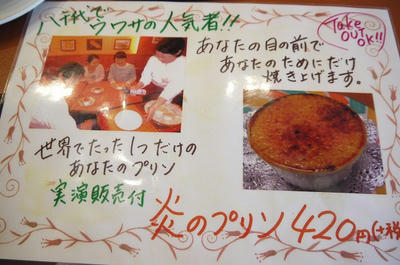 八千代でウワサの人気者!!
Take
OUT
OK!!
あなたの目の前で
あなたのためにだけ
焼き上げます。
世界でたった1つだけの
あなたのプリン
実演販売付
炎のプリン420円(+税